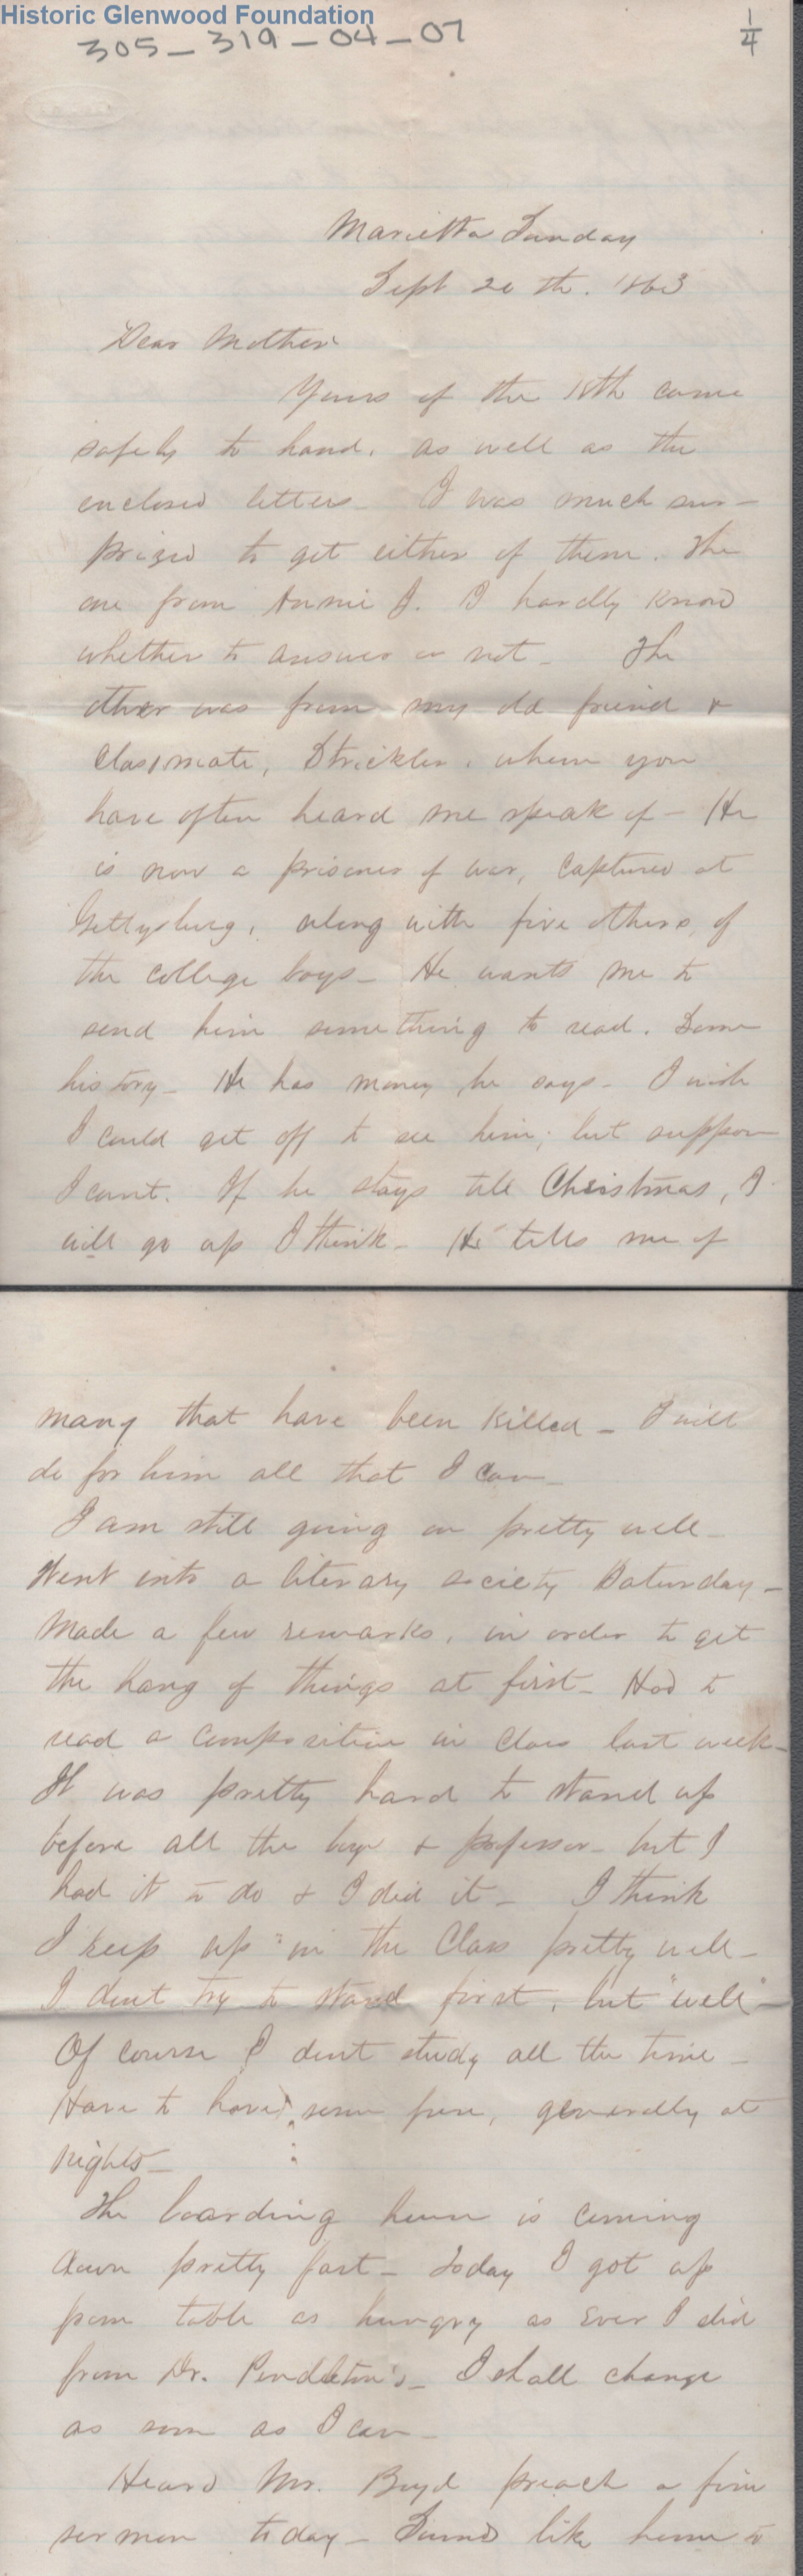 Historic Glenwood Foundation
305-319-04-07
1/4
Marietta Sunday
Sept 20 th. 1863
Dear Mother
Yours of the 18th came
safely to hand, as well as the
enclosed letters - I was much sur-
prized to get either of them. The
one from Annie J. I hardly know
whether to answer or not - The
other was from my old friend &
classmate, Strickler, whom you
have often heard me speak of - He
is now a prisoner of war, captured at
Gettysburg, along with five others, of
the college boys - He wants me to
send him something to read. Some
history - He has money he says - I wish
I could get off to see him; but suppose
I cant. If he stays till Christmas, I
will go up I think - He tells me of
many that have been killed - I will
do for him all that I can -
I am still going on pretty well -
Went into a literary society Saturday -
Made a few remarks, in order to get
the hang of things at first - Had to
read a composition in class last week -
It was pretty hard to stand up
before all the boys & professor - but I
had it to do & I did it - I think
I keep up in the Class pretty well -
I dont try to stand first, but "well" -
Of course I dont study all the time -
Have to have some fun, generally at
nights -
The boarding house is coming
down pretty fast - Today I got up
from table as hungry as ever I did
from Dr. Pendleton's - I shall change
as soon as I can -
Heard Mr. Boyd preach a fine
sermon today - Sounds like home to